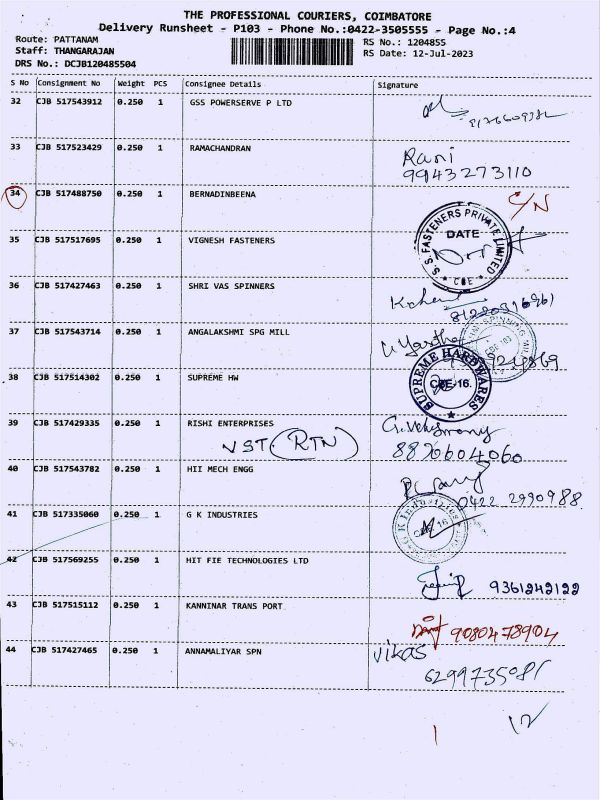 THE PROFESSIONAL COURIERS, COIMBATORE
Delivery Runsheet - P103 - Phone No.:0422-3505555 - Page No.:4
Route: PATTANAM RS No.: 1204855
Staff: THANGARAJAN RS Date: 12-Jul-2023
DRS No.: DCJB120485504
S No Consignment No Weight PCS Consignee Details Signature
32 CJB 517543912 0.250 1 GSS POWERSERVE P LTD
33 CJB 517523429 0.250 1 RAMACHANDRAN Rani
9943273110
34 CJB 517488750 0.250 1 BERNADINBEENA C/N
S. S. FASTENERS PRIVATE LIMITED
DATE
CBE
35 CJB 517517695 0.250 1 VIGNESH FASTENERS
36 CJB 517427463 0.250 1 SHRI VAS SPINNERS
37 CJB 517543714 0.250 1 ANGALAKSHMI SPG MILL
38 CJB 517514302 0.250 1 SUPREME HW
SUPREME HARDWARES
CBE-16.
39 CJB 517429335 0.250 1 RISHI ENTERPRISES
NST. (RTN) 8870604060
40 CJB 517543782 0.250 1 HII MECH ENGG
0422 2990988
41 CJB 517335060 0.250 1 G K INDUSTRIES
G K Industries
CBE 16
42 CJB 517569255 0.250 1 HIT FIE TECHNOLOGIES LTD
9361242122
43 CJB 517515112 0.250 1 KANNINAR TRANS PORT
9080478904
44 CJB 517427465 0.250 1 ANNAMALIYAR SPN Vikas
6299735081
12